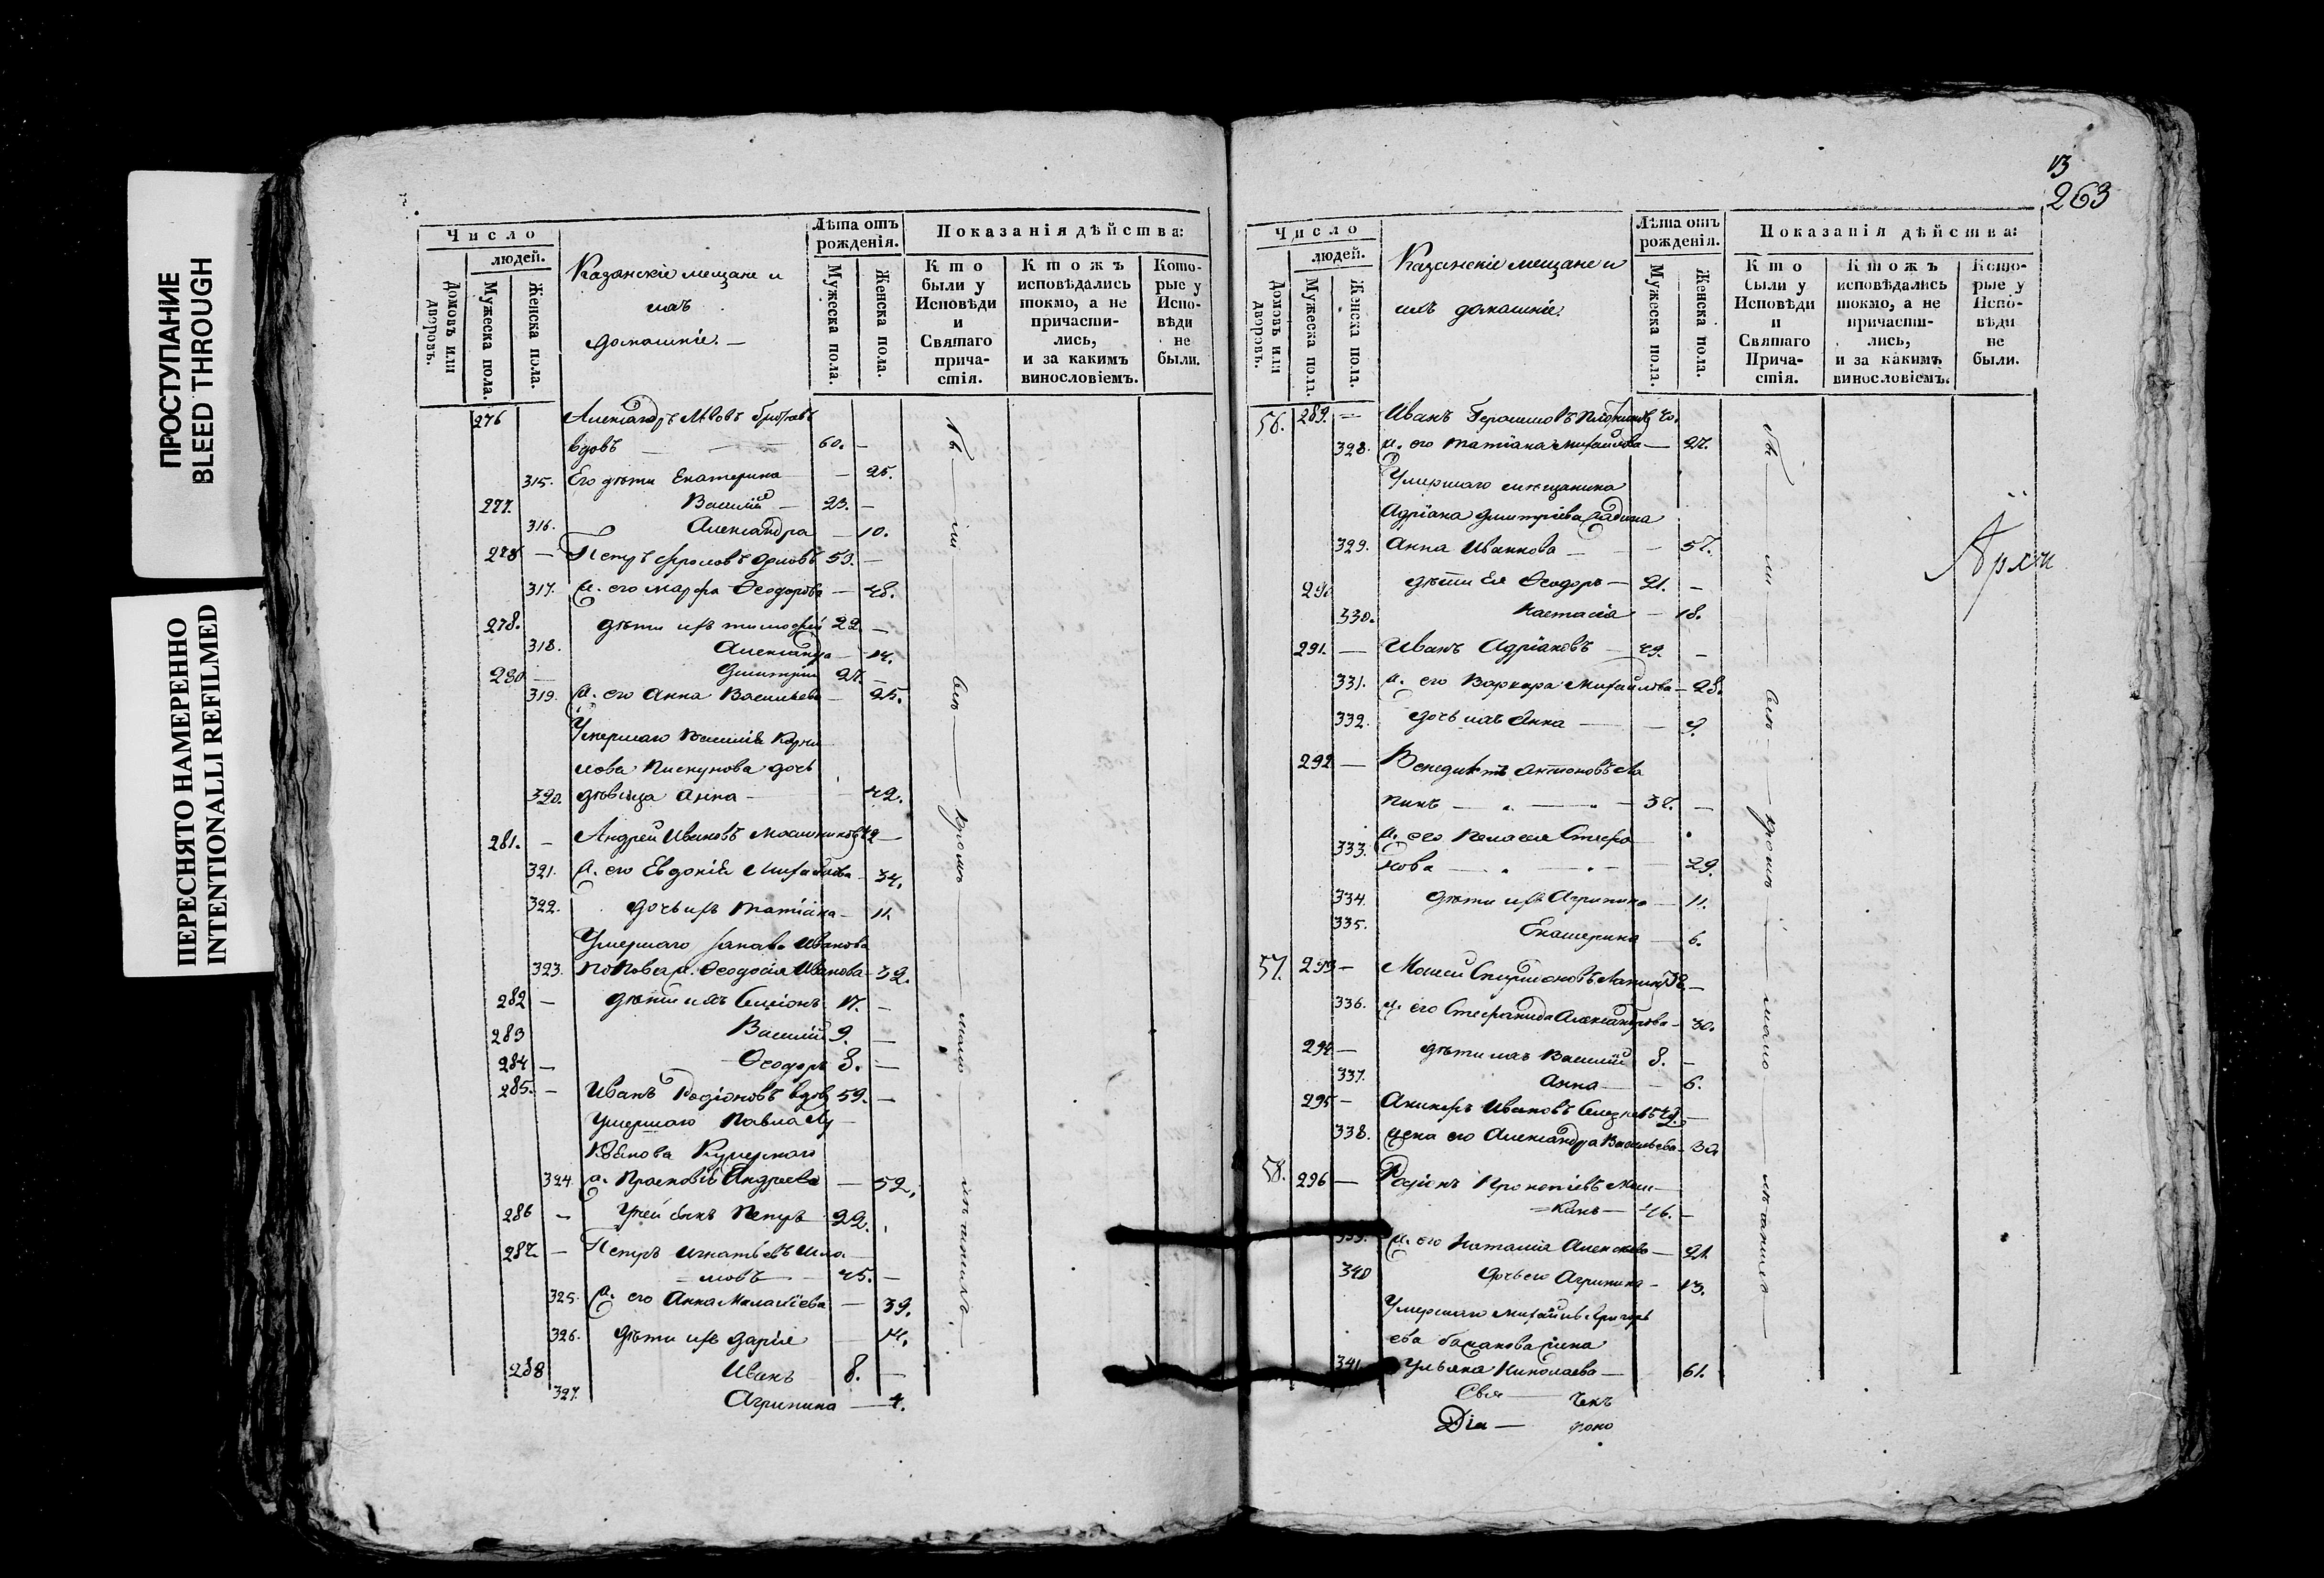 ПРОСТУПАНИЕ
BLEED THROUGH
ПЕРЕСНЯТО НАМЕРЕННО
INTENTIONALLI REFILMED
Число
людей.
Домовъ или дворовъ.
Мужеска пола.
Женска пола.
Казанскіе мещане и
ихъ
домашніе. —
Лѣта отъ рожденія.
Мужеска пола.
Женска пола.
Показанія дѣйства:
Кто были у Исповѣди и Святаго причастія.
Ктожъ исповѣдались токмо, а не причастились, и за какимъ винословіемъ.
Которые у Исповѣди не были.
276 Александръ Львовъ
вдовъ — 60. —
315. Его дѣти Екатерина — 25.
277. Василій — 23. —
316. Александра — 10.
278 — Петръ Фроловъ 53. —
317. ж. его Марфа Ѳеодорова — 48.
278. дѣти ихъ Тимофей 22. —
318. Александра — 14.
280 — Дмитрій 27. —
319. ж. его Анна Васильева — 25.
Умершаго Василія Корни
лова Пискунова дочь
320. дѣвица Анна — 42.
281. — Андрей Ивановъ
321. ж. его Евдокія Михайлова — 34.
322. дочь ихъ Татіана — 11.
Умершаго Иванова
323. Попова ж. Ѳеодосія Иванова — 32.
282 — дѣти ихъ Симіонъ 17. —
283 Василій 9. —
284 — Ѳеодоръ 8. —
285. — Иванъ Родіоновъ вдовъ 59. —
Умершаго Павла
324. ж. Прасковія Андреева — 52.
286 — сынъ Петръ 22.
287 — Петръ Игнатьевъ Шла
мовъ — 45. —
325. ж. его Анна Малафіева — 39.
326. дѣти ихъ Дарія — 14.
288 Иванъ 8. —
327. Агрипина — 4.
13
263
Число
людей.
Домовъ или дворовъ.
Мужеска пола.
Женска пола.
Казанскіе мещане и
ихъ домашніе.
Лѣта отъ рожденія.
Мужеска пола.
Женска пола.
Показанія дѣйства:
Кто были у Исповѣди и Святаго Причастія.
Ктожъ исповѣдались токмо, а не причастились, и за какимъ винословіемъ.
Которые у Исповѣди не были.
56. 289. — Иванъ Герасимовъ Плотников 40.
328. ж. его Татіана Михайлова — 27.
Умершаго мещанина
Адріана Дмитріева
329. Анна Иванова — 57.
290 дѣти ея Ѳеодоръ — 21. —
330. Настасія — 18.
291. — Иванъ Адріановъ — 29. —
331. ж. его Варвара Михайлова — 28.
332. дочь ихъ Анна — 9.
292 — Венедиктъ Антоновъ Ла
пинъ — 38. —
333. ж. его Пелагея Стефа
нова — 29.
334. дѣти ихъ Агрипина — 11.
335. Екатерина — 6.
57. 293 — Моисей Спиридоновъ Лапин 38. —
336. ж. его Стефанида Александрова — 30.
294 — дѣти ихъ Василій 8. —
337. Анна — 6.
295 — Ивановъ
338. жена его Александра Васильева
58. 296 — Родіонъ Прокопіевъ
кинъ — 46. —
339. ж. его Наталія Алексѣева — 21.
340 дочь его Агрипина — 13.
Умершаго Михайла Григорь
ева жена
341. Ульяна Николаева — 61.
Свя — щенъ
Діа — коно
Архи